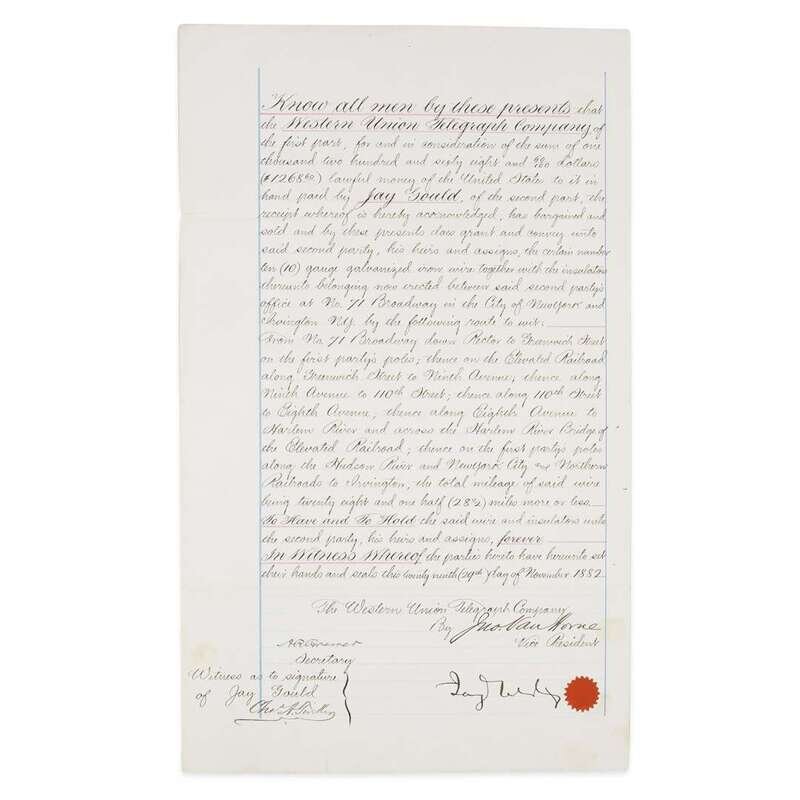 Know all men by these presents that
the Western Union Telegraph Company of
the first part, for and in consideration of the sum of one
thousand two hundred and sixty eight and 60/100 dollars
($1268 60) lawful money of the United States to it in
hand paid by Jay Gould, of the second part, the
receipt whereof is hereby acknowledged, has bargained and
sold and by these presents does grant and convey unto
said second party, his heirs and assigns, the certain number
ten (10) gauge galvanized iron wire together with the insulators
thereunto belonging now erected between said second party's
office at No. 71 Broadway in the City of New York and
Irvington N.Y. by the following route to wit:
From No. 71 Broadway down Rector to Greenwich Street
on the first party's poles; thence on the Elevated Railroad
along Greenwich Street to Ninth Avenue; thence along
Ninth Avenue to 110th Street; thence along 110th Street
to Eighth Avenue; thence along Eighth Avenue to
Harlem River and across the Harlem River Bridge of
the Elevated Railroad; thence on the first party's poles
along the Hudson River and New York City and Northern
Railroads to Irvington, the total mileage of said wire
being twenty eight and one half (28½) miles more or less.
To Have and To Hold the said wire and insulators unto
the second party, his heirs and assigns, forever
In Witness Whereof the parties hereto have hereunto set
their hands and seals this twenty ninth (29th) day of November 1882.
The Western Union Telegraph Company
By Jno. Van Horne
Vice President
Secretary
Witness as to signature
of Jay Gould
Jay Gould